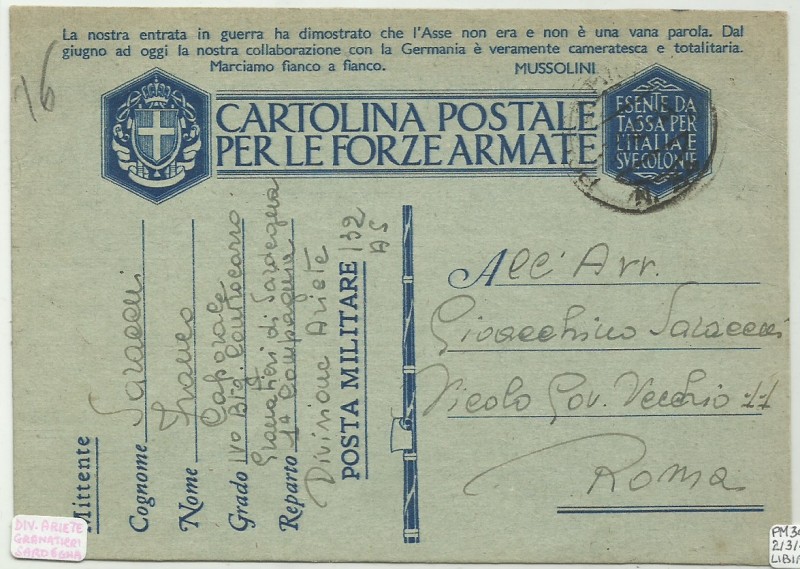 La nostra entrata in guerra ha dimostrato che l'Asse non era e non è una vana parola. Dal
giugno ad oggi la nostra collaborazione con la Germania è veramente cameratesca e totalitaria.
Marciamo fianco a fianco. MUSSOLINI
16
CARTOLINA POSTALE
PER LE FORZE ARMATE
ESENTE DA
TASSA PER
L'ITALIA E
SVE COLONIE
Mittente
Cognome Saracchi
Nome Franco
Grado Caporale
IVº Btg. Controcarro
Granatieri di Sardegna
Reparto 1ª Compagnia
Divisione Ariete
POSTA MILITARE 132
AS
All'Avv.
Gioacchino Saracchi
Vicolo Gov. Vecchio 11
Roma
DIV. ARIETE
GRANATIERI
SARDEGNA
2/3/
LIBIA